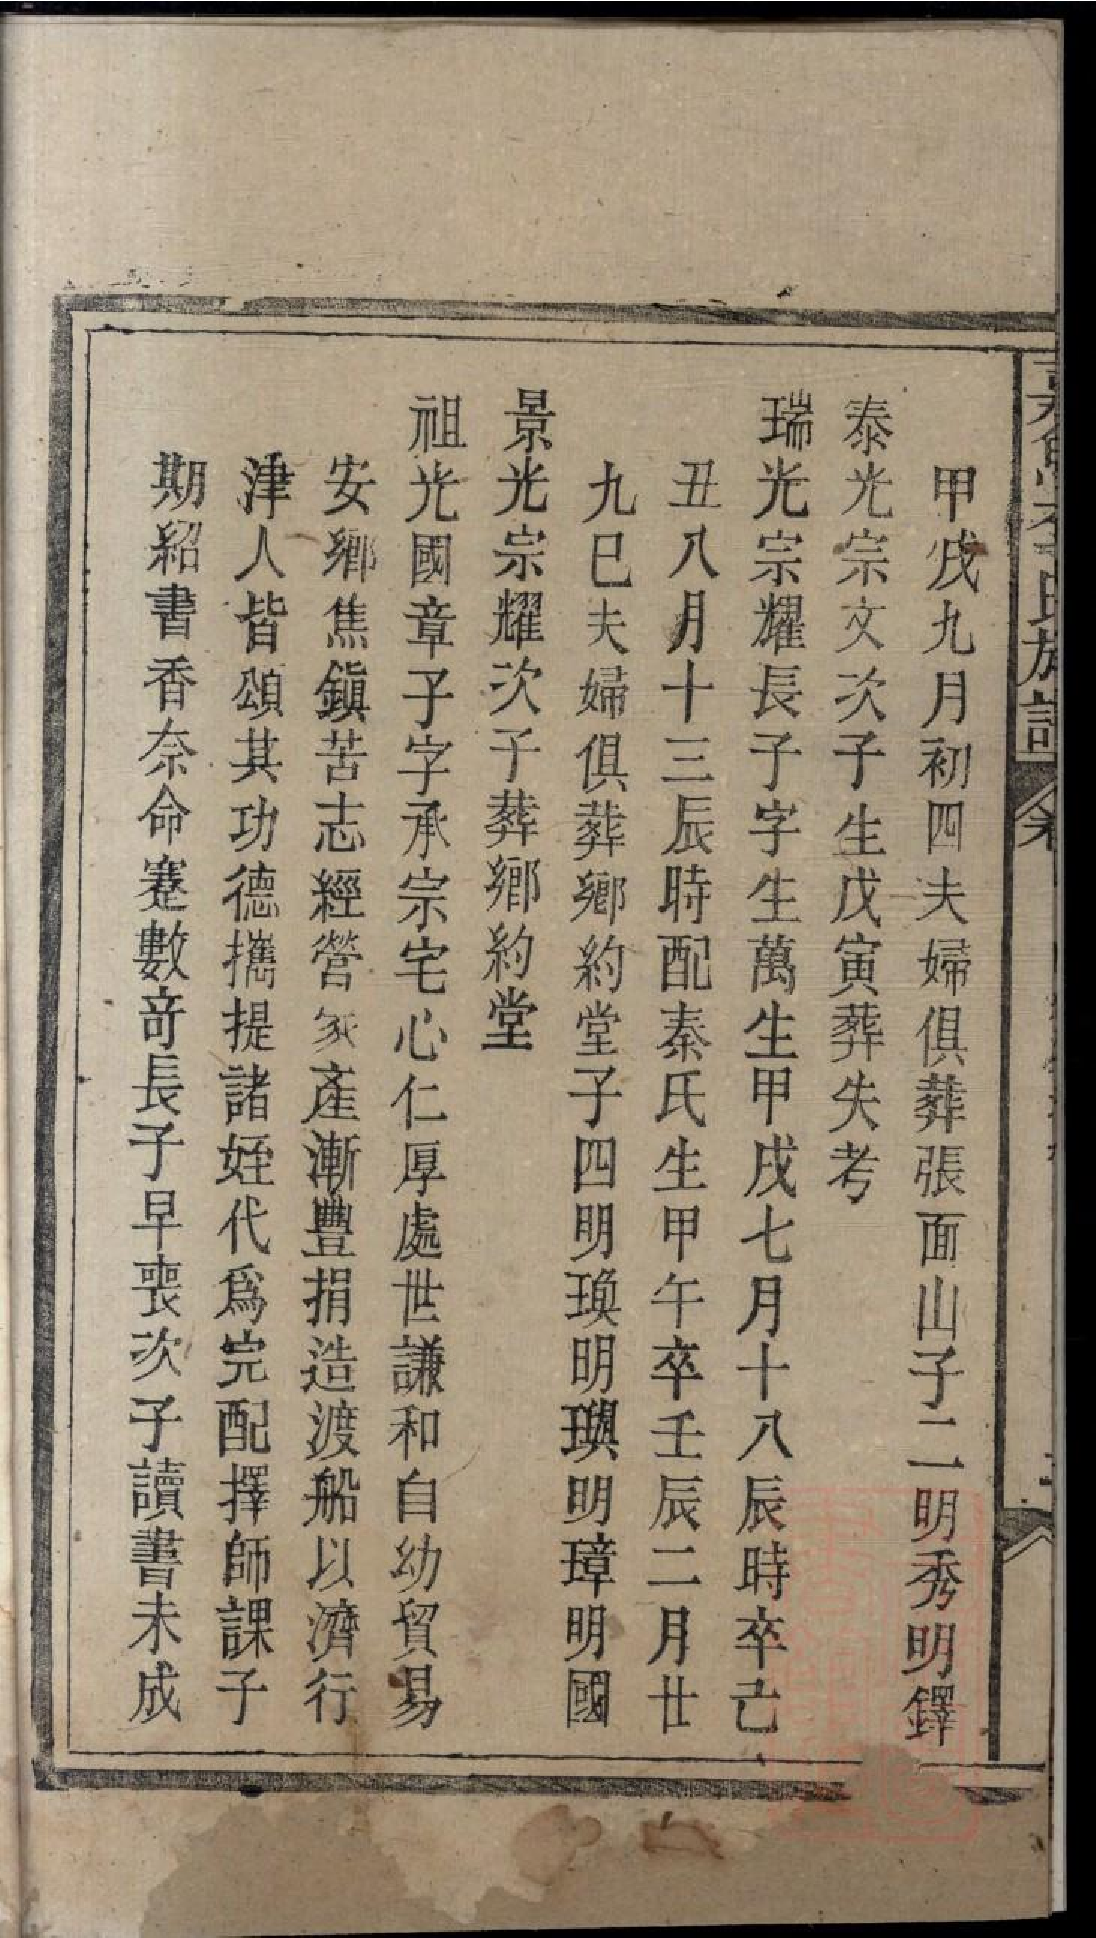 甲戌九月初四夫婦俱葬張面山子二明秀明鐸
泰光宗文次子生戊寅葬失考
瑞光宗耀長子字生萬生甲戌七月十八辰時卒己
丑八月十三辰時配秦氏生甲午卒壬辰二月廿
九巳夫婦俱葬鄉約堂子四明瑍明璵明璋明國
景光宗耀次子葬鄉約堂
祖光國章子字承宗宅心仁厚處世謙和自幼貿易
安鄉焦鎮苦志經營家產漸豐捐造渡船以濟行
津人皆頌其功德攜提諸姪代爲完配擇師課子
期紹書香奈命蹇數奇長子早喪次子讀書未成